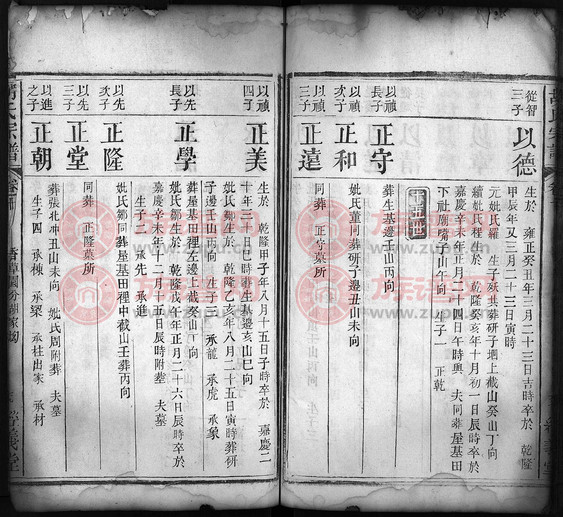 從智
三子
以德
生於 雍正癸丑年三月二十三日吉時卒於 乾隆
甲辰年又三月二十三日寅時
元妣氏羅 生子殀共葬研子垇上截山癸山丁向
續妣氏程生於 乾隆癸亥年十月初一日辰時卒於
嘉慶辛未年正月二十四日午時與 夫同葬屋基田
下社廟嘴子山午向 生子一 正乾
以禎
次子
正守
葬生基邊壬山丙向
以禎
次子
正和
妣氏董同葬研子邊丑山未向
以禎
三子
正遠
同葬 正守墓所
以禎
四子
正美
生於 乾隆甲子年八月十五日子時卒於 嘉慶二
十年三月十日巳時葬生基邊亥山巳向
妣氏鄒生於 乾隆乙亥年八月二十五日寅時葬研
子邊壬山丙向 生子三 承龍 承虎 承象
以先
長子
正學
葬屋基田裡左邊上截癸山丁向
妣氏鄒生於 乾隆戊午年正月二十六日辰時卒於
嘉慶辛未年十二月十五日辰時附葬 夫墓
生子二 承先 承進
以先
次子
正隆
妣氏鄒同葬屋基田裡中截山壬葬丙向
以先
三子
正堂
同葬 正隆墓所
以進
之子
正朝
葬張北冲丑山未向 妣氏周附葬 夫墓
生子四 承棟 承梁 承柱出家 承材
氏宗譜
卷